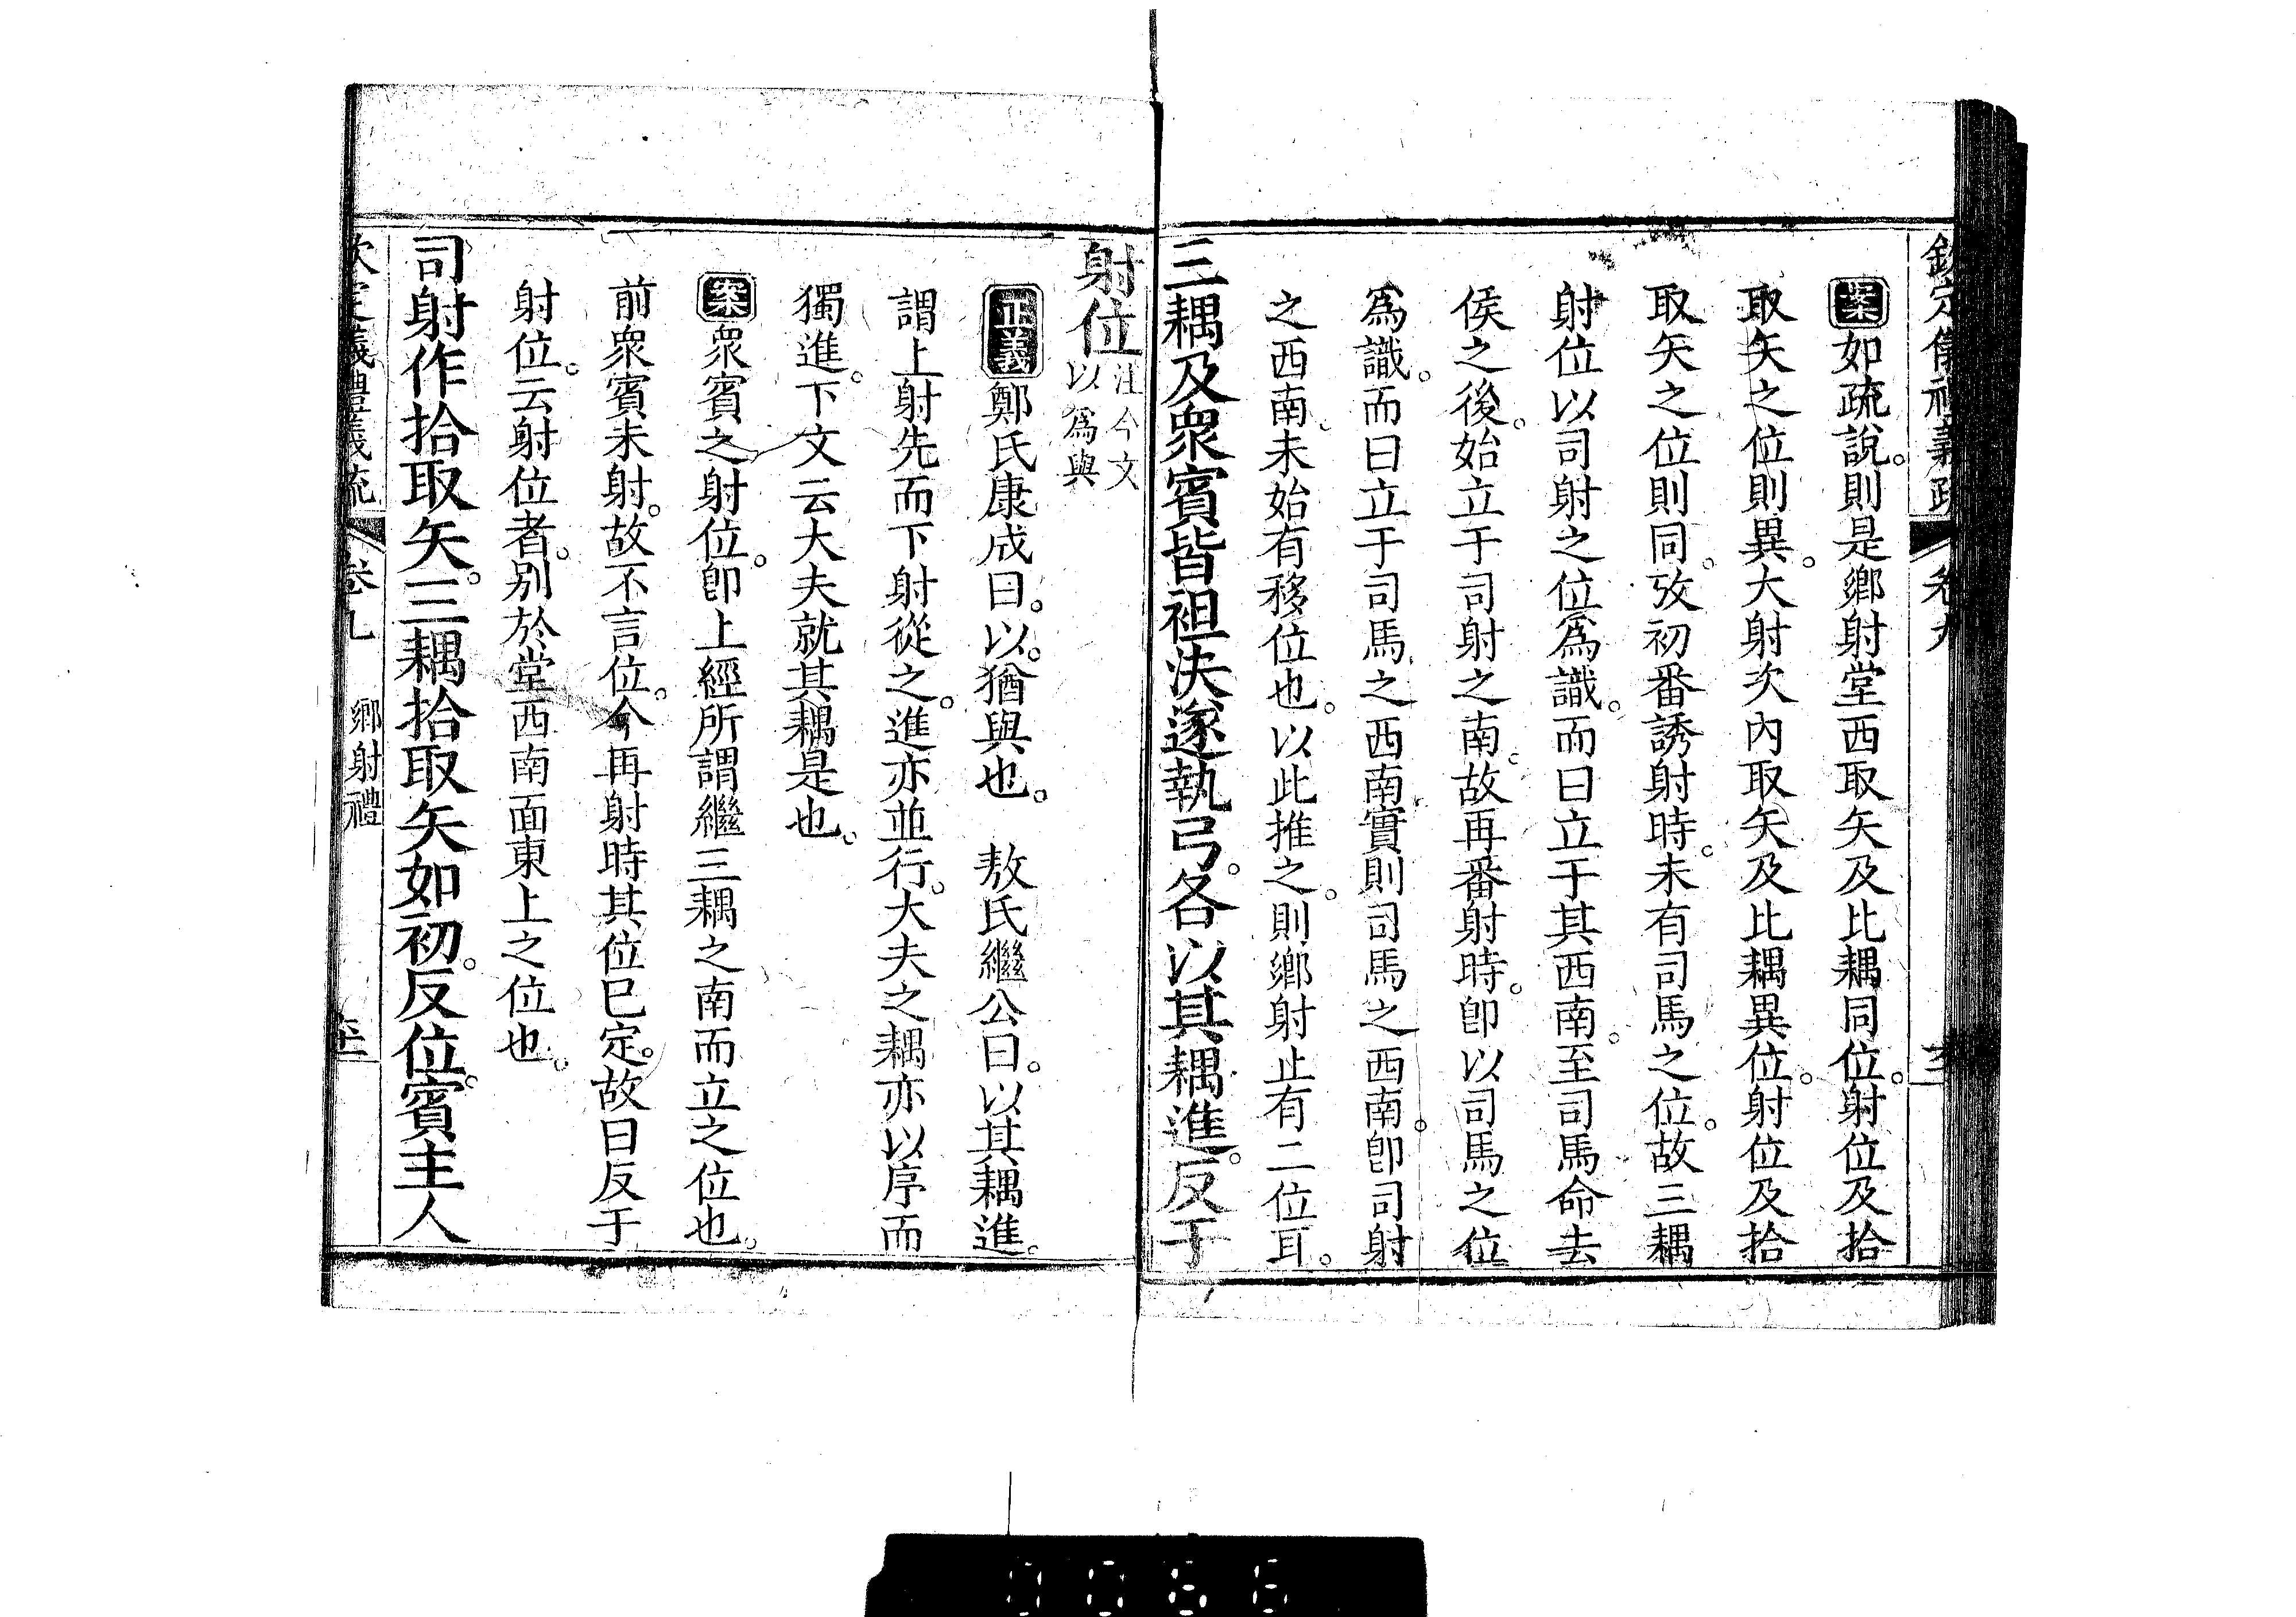 欽定儀禮義疏 卷九
案如疏說。則是鄉射堂西取矢及比耦同位。射位及拾
取矢之位則異。大射次內取矢及比耦異位。射位及拾
取矢之位則同。攷初番誘射時。未有司馬之位。故三耦
射位以司射之位為識。而曰立于其西南。至司馬命去
侯之後。始立于司射之南。故再番射時。即以司馬之位
為識。而曰立于司馬之西南。實則司馬之西南。即司射
之西南。未始有移位也。以此推之。則鄉射止有二位耳。
三耦及眾賓皆袒決遂執弓。各以其耦進。反于
射位注今文以為與
正義鄭氏康成曰。以。猶與也。 敖氏繼公曰。以其耦進。
謂上射先而下射從之。進亦並行。大夫之耦亦以序而
獨進。下文云大夫就其耦是也。
案眾賓之射位。即上經所謂繼三耦之南而立之位也。
前眾賓未射。故不言位。今再射時其位已定。故曰反于
射位。云射位者。別於堂西南面東上之位也。
司射作拾取矢。三耦拾取矢如初。反位。賓主人
欽定儀禮義疏 卷九 鄉射禮
0066